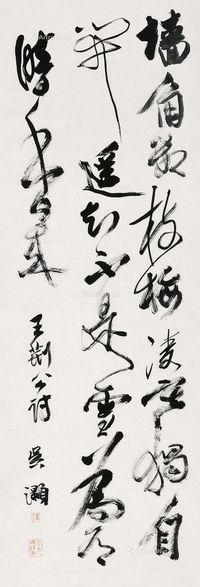 墙角数枝梅凌寒独自
开遥知不是雪为有
暗香来
王荆公诗 吴灏